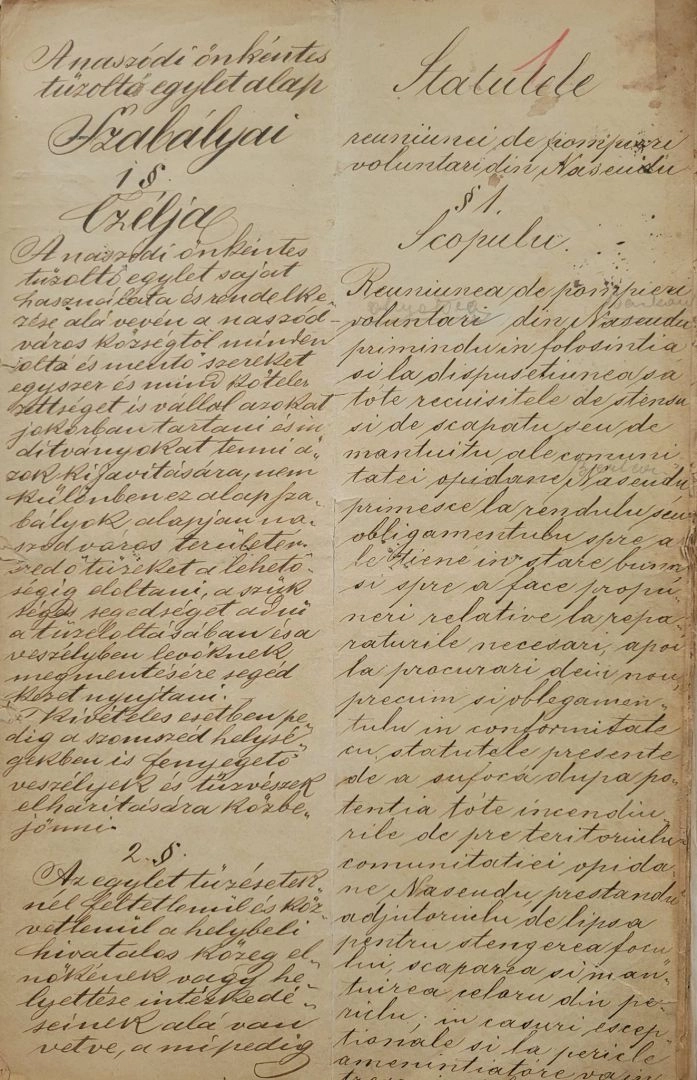 A naszódi önkéntes
tűzoltó egylet alap
Szabályai
1 §.
Czélja
A naszódi önkéntes
tűzoltó egylet saját
használata és rendelke-
zése alá vevén a naszód
város községtől minden
oltó és mentő szereket
egyszer és mind köteles
zettséget is vállal azokat
jókorban tartani és in
dítványokat tenni a-
zok kijavítására, nem
különben ez alapsza-
bályok alapján na-
szód város területén
eredő tüzeket a lehető-
ségig eloltani, a szük
séges segedséget adni
a tűzeloltásában és a
veszélyben levőknek
megmentésére segéd
kezet nyujtani.
Kivételes esetben pe-
dig a szomszéd helysé-
gekben is fenyegető
veszélyek és tűzvészek
elháritására közbe-
jönni.
2. §.
Az egylet tűzesetek-
nél feltétlenül és köz-
vetlenül a helybeli
hivatalos közeg el-
nökének vagy he-
lyettése intézkedé-
seinek alá van
vetve, a mi pedig
1
Statutele
reuniunei de pompieri
voluntari din Naseudu
§ 1.
Scopulu.
Reuniunea de pompieri
voluntari din Naseudu
primindu in folosintia
si la dispusetiunea sa
tóte recuisitele de stensu
si de scapatu seu de
mantuitu ale comuni
tatei opidane Naseudu,
primesce la rendulu seu
obligamentulu spre a
le tiené in stare bună
si spre a face propu-
neri relative la repa-
raturile necesari, apoi
la procurari dein nou,
precum si oblegamen-
tulu in conformitate
cu statutele presente
de a sufocá dupa po-
tentia tóte incendiu-
rile de pre teritoriulu
comunitatiei opida-
ne Naseudu prestandu
adjutoriulu de lipsa
pentru stengerea focu
lui, scaparea si man-
tuirea celoru din pe-
riclu; in casuri escep-
tionale si la pericle
amenintiatóre va in